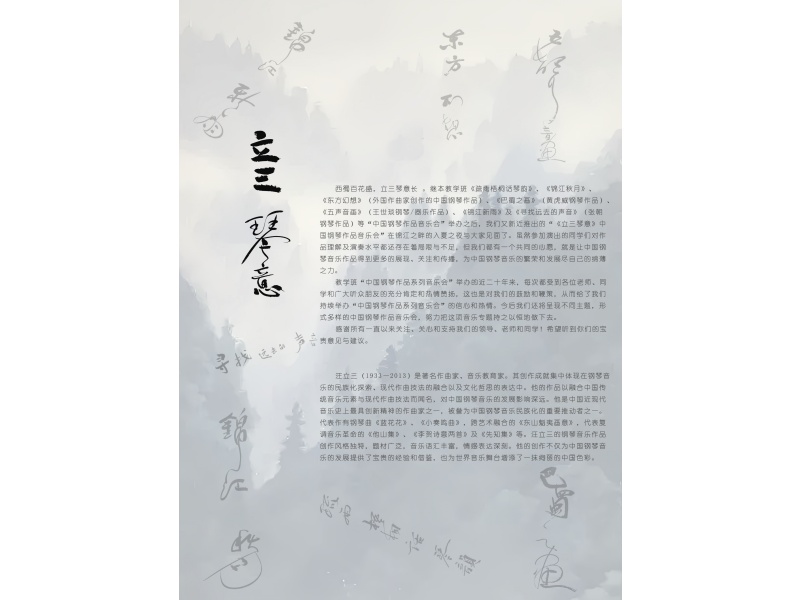 东方幻想
五声音画
立三琴意
西蜀百花盛、立三琴意长 。继本教学班《疏雨梧桐话琴韵》、《锦江秋月》、
《东方幻想》（外国作曲家创作的中国钢琴作品）、《巴蜀之画》（黄虎威钢琴作品）、
《五声音画》（王世燚钢琴/器乐作品）、《锦江新雨》及《寻找远去的声音》（张朝
钢琴作品）等“中国钢琴作品音乐会”举办之后，我们又新近推出的“《立三琴意》中
国钢琴作品音乐会”在锦江之畔的入夏之夜与大家见面了。虽然参加演出的同学们对作
品理解及演奏水平都还存在着局限与不足，但我们都有一个共同的心愿，就是让中国钢
琴音乐作品得到更多的展现、关注和传播，为中国钢琴音乐的繁荣和发展尽自己的绵薄
之力。
教学班“中国钢琴作品系列音乐会”举办的近二十年来，每次都受到各位老师、同
学和广大听众朋友的充分肯定和热情赞扬，这也是对我们的鼓励和鞭策，从而给了我们
持续举办“中国钢琴作品系列音乐会”的信心和热情。今后我们还将呈现不同主题，形
式多样的中国钢琴作品音乐会，努力把这项音乐专题持之以恒地做下去。
感谢所有一直以来关注、关心和支持我们的领导、老师和同学！希望听到你们的宝
贵意见与建议。
寻找远去的声音
汪立三（1933—2013）是著名作曲家、音乐教育家。其创作成就集中体现在钢琴音
乐的民族化探索、现代作曲技法的融合以及文化哲思的表达中。他的作品以融合中国传
统音乐元素与现代作曲技法而闻名，对中国钢琴音乐的发展影响深远。他是中国近现代
音乐史上最具创新精神的作曲家之一，被誉为中国钢琴音乐民族化的重要推动者之一。
代表作有钢琴曲《蓝花花》、《小奏鸣曲》、跨艺术融合的《东山魁夷画意》，代表复
调音乐革命的《他山集》、《李贺诗意两首》及《先知集》等。汪立三的钢琴音乐作品
创作风格独特，题材广泛，音乐语汇丰富，情感表达深刻。他的创作不仅为中国钢琴音
乐的发展提供了宝贵的经验和借鉴，也为世界音乐舞台增添了一抹绚丽的中国色彩。
锦江秋月
巴蜀之画
疏雨梧桐话琴韵